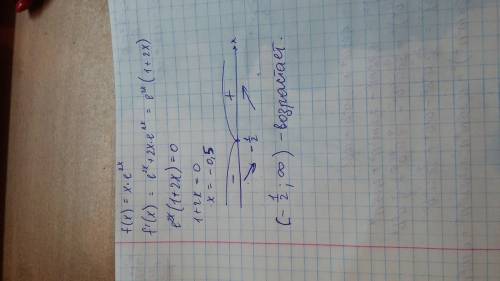 f(x) = x·e^2x
f'(x) = e^2x + 2x·e^2x = e^2x (1+2x)
e^2x (1+2x) = 0
1+2x = 0
x = -0,5
- + x
-1/2
(-1/2; ∞) - возрастает.